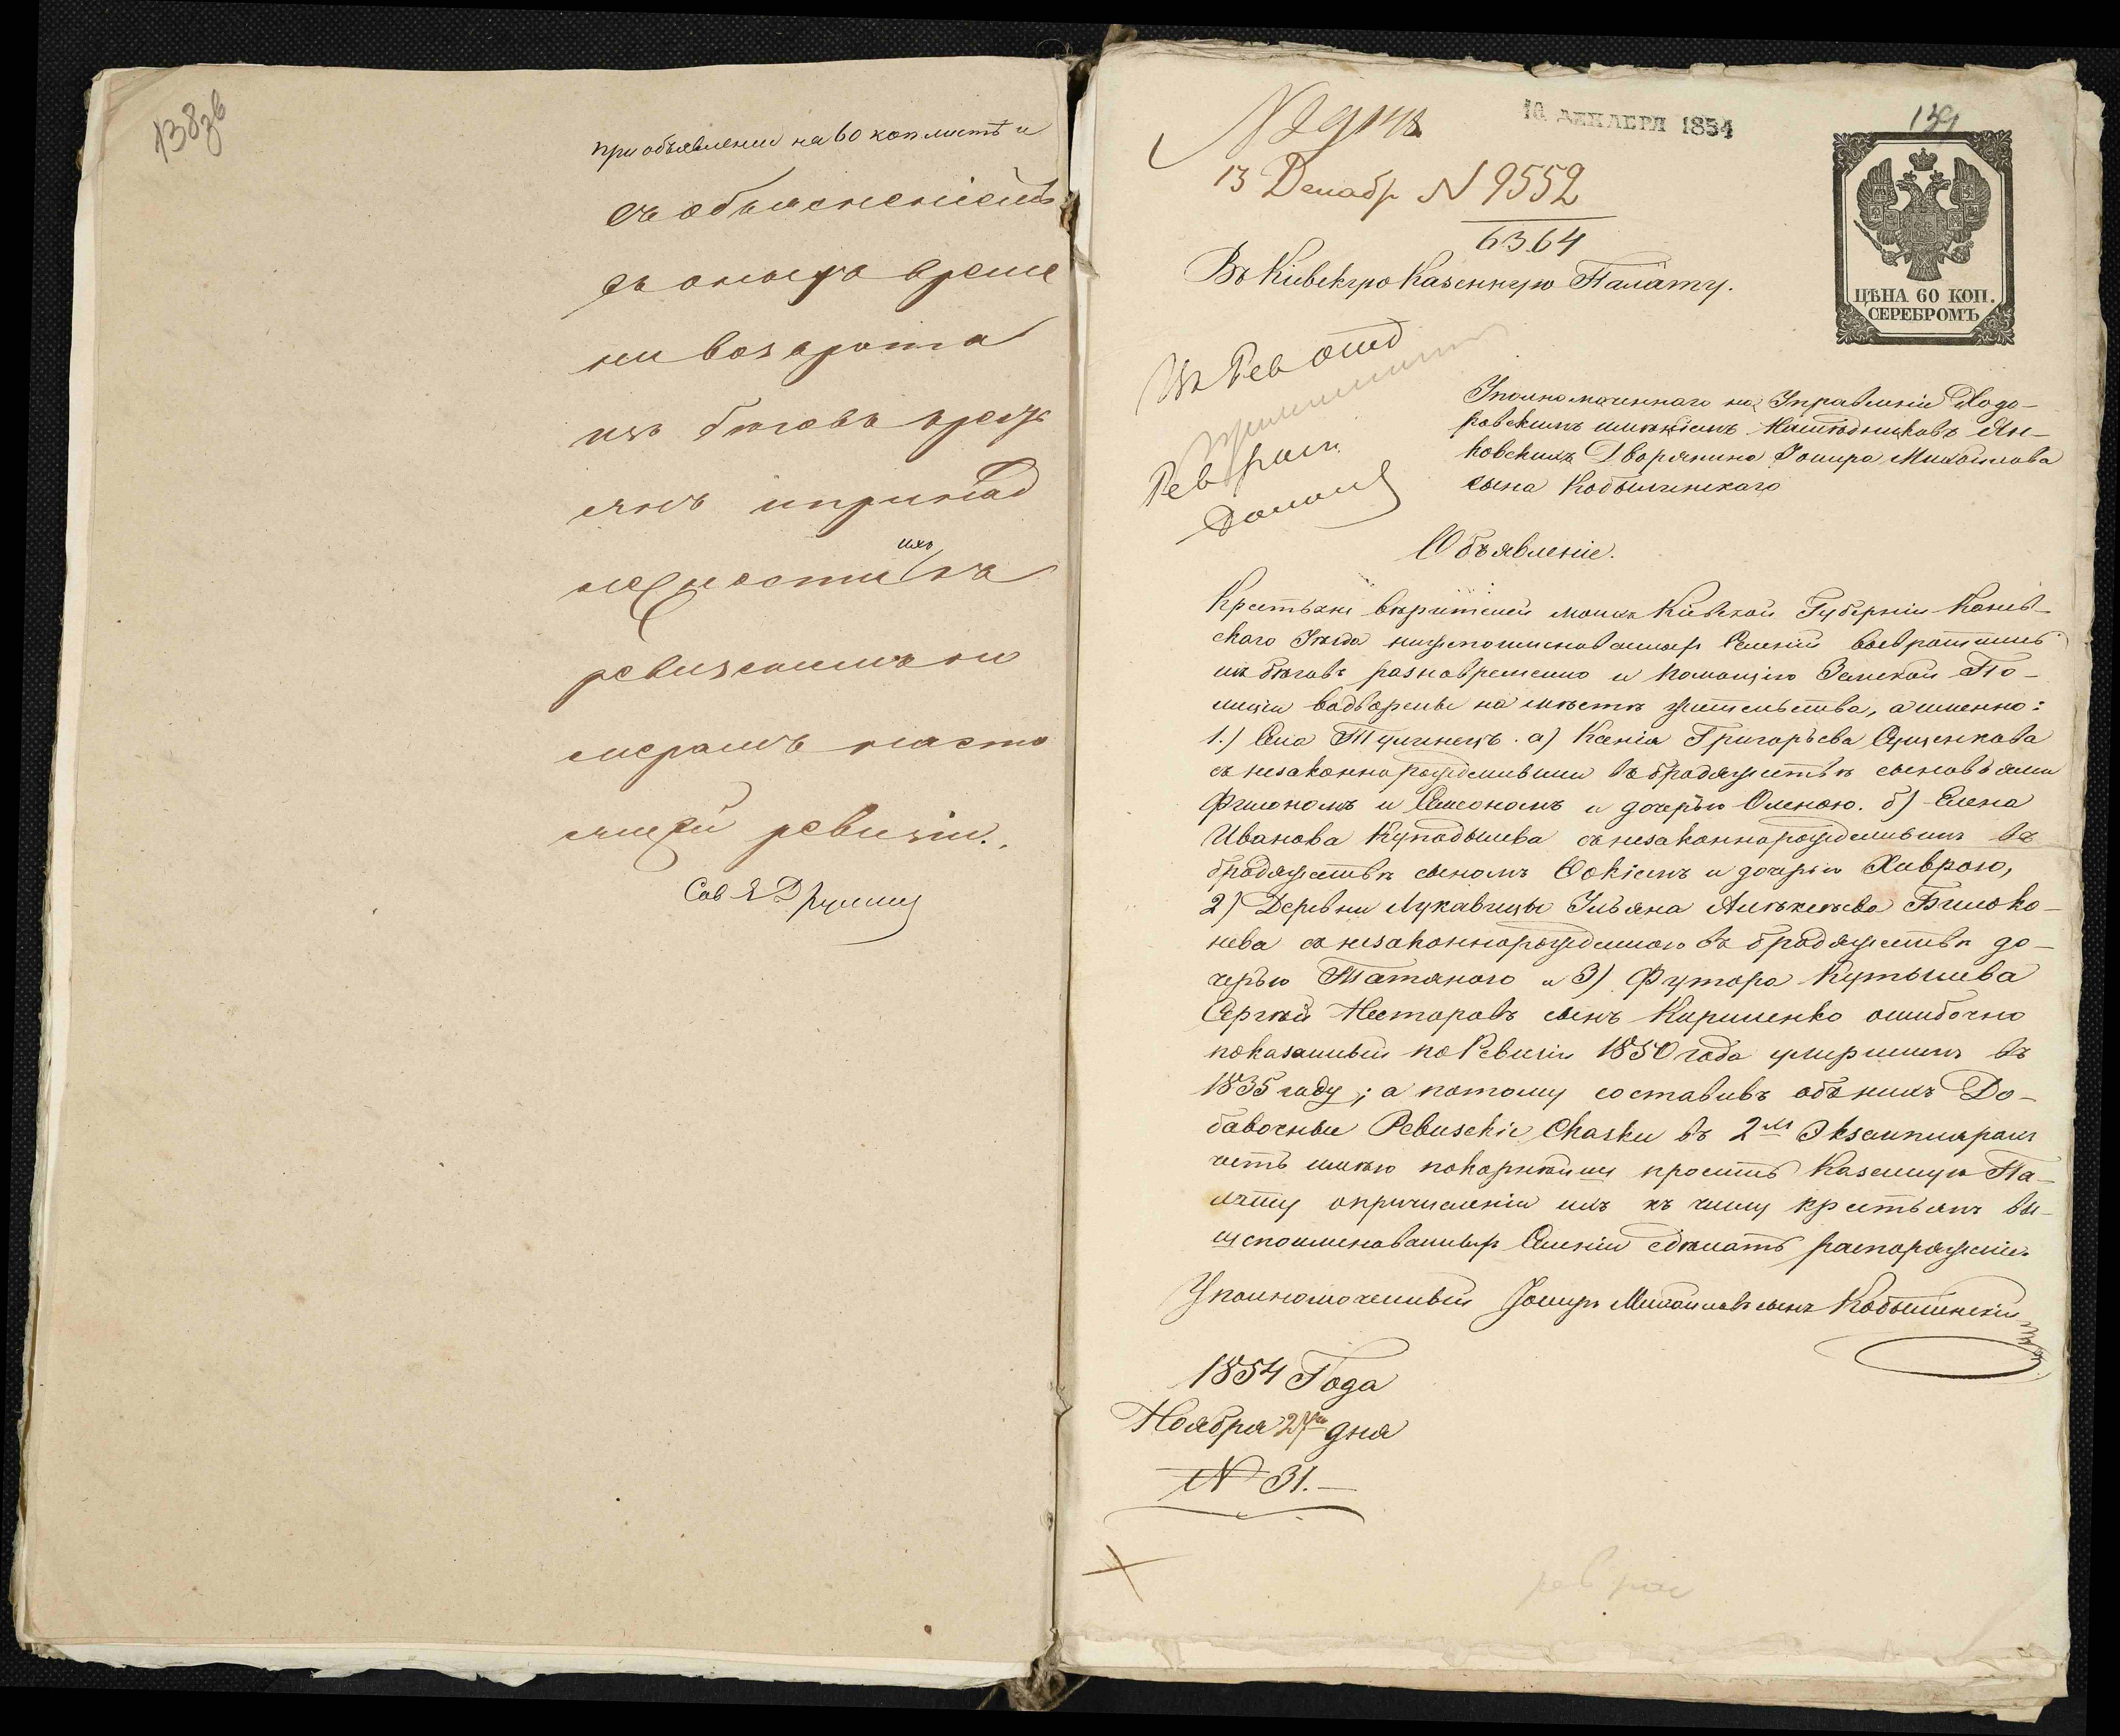 138зв
при объявленіи на 60 коп листѣ и
съ объясненіемъ
въ оныхъ време
ни возврата
изъ бѣговъ кресть
янъ и принад
лежности ихъ къ
ревизскимъ ну
мерамъ насто
ящей ревизіи.
Сов
139
10 ДЕКАБРЯ 1854
13 Декабр N 9552
6364
ЦѢНА 60 КОП.
СЕРЕБРОМЪ
Въ Кіевскую Казенную Палату.
Въ Рев отд
Рев
Уполномоченнаго на Управленіе Ходо-
ровскимъ имѣніемъ Наслѣдниковъ Ян-
ковскихъ Дворянина Іосифа Михайлова
сына Кобылинскаго
Объявленіе.
Крестьяне вѣрителей моихъ Кіевской Губерніи Канев-
скаго Уѣзда нижепоименованныхъ Селеній возвратились
изъ бѣговъ разновременно и помощію Земской По-
лиціи водворены на мѣстѣ жительства, а именно:
1.) Села Тулинецъ. а) Ксенія Григорьева Сущенкова
съ незаконнорожденными въ бродяжествѣ сыновьями
Филономъ и Семеномъ и дочерью Оленою. б) Елена
Иванова съ незаконнорожденнымъ въ
бродяжествѣ сыномъ и дочерью Хиврою,
2) Деревни Лукавицы Ульяна Алексѣева Билоко-
нева съ незаконнорожденною въ бродяжествѣ до-
черью Татяною и 3) Футора
Сергѣй Несторовъ сынъ Кириленко ошибочно
показанный по Ревизіи 1850 года умершимъ въ
1835 году; а потому составивъ объ нихъ До-
бавочные Ревизскіе Сказки въ 2хъ Экземплярахъ
честь имѣю покорнѣйше просить Казенную Па-
лату о причисленіи ихъ къ числу крестьянъ вы-
шепоименованныхъ Селеній сдѣлать распоряженіе.
Уполномоченный Іосифъ Михайловъ сынъ Кобылинскій
1854 Года
Ноября 27 дня
N 31.
рев рас